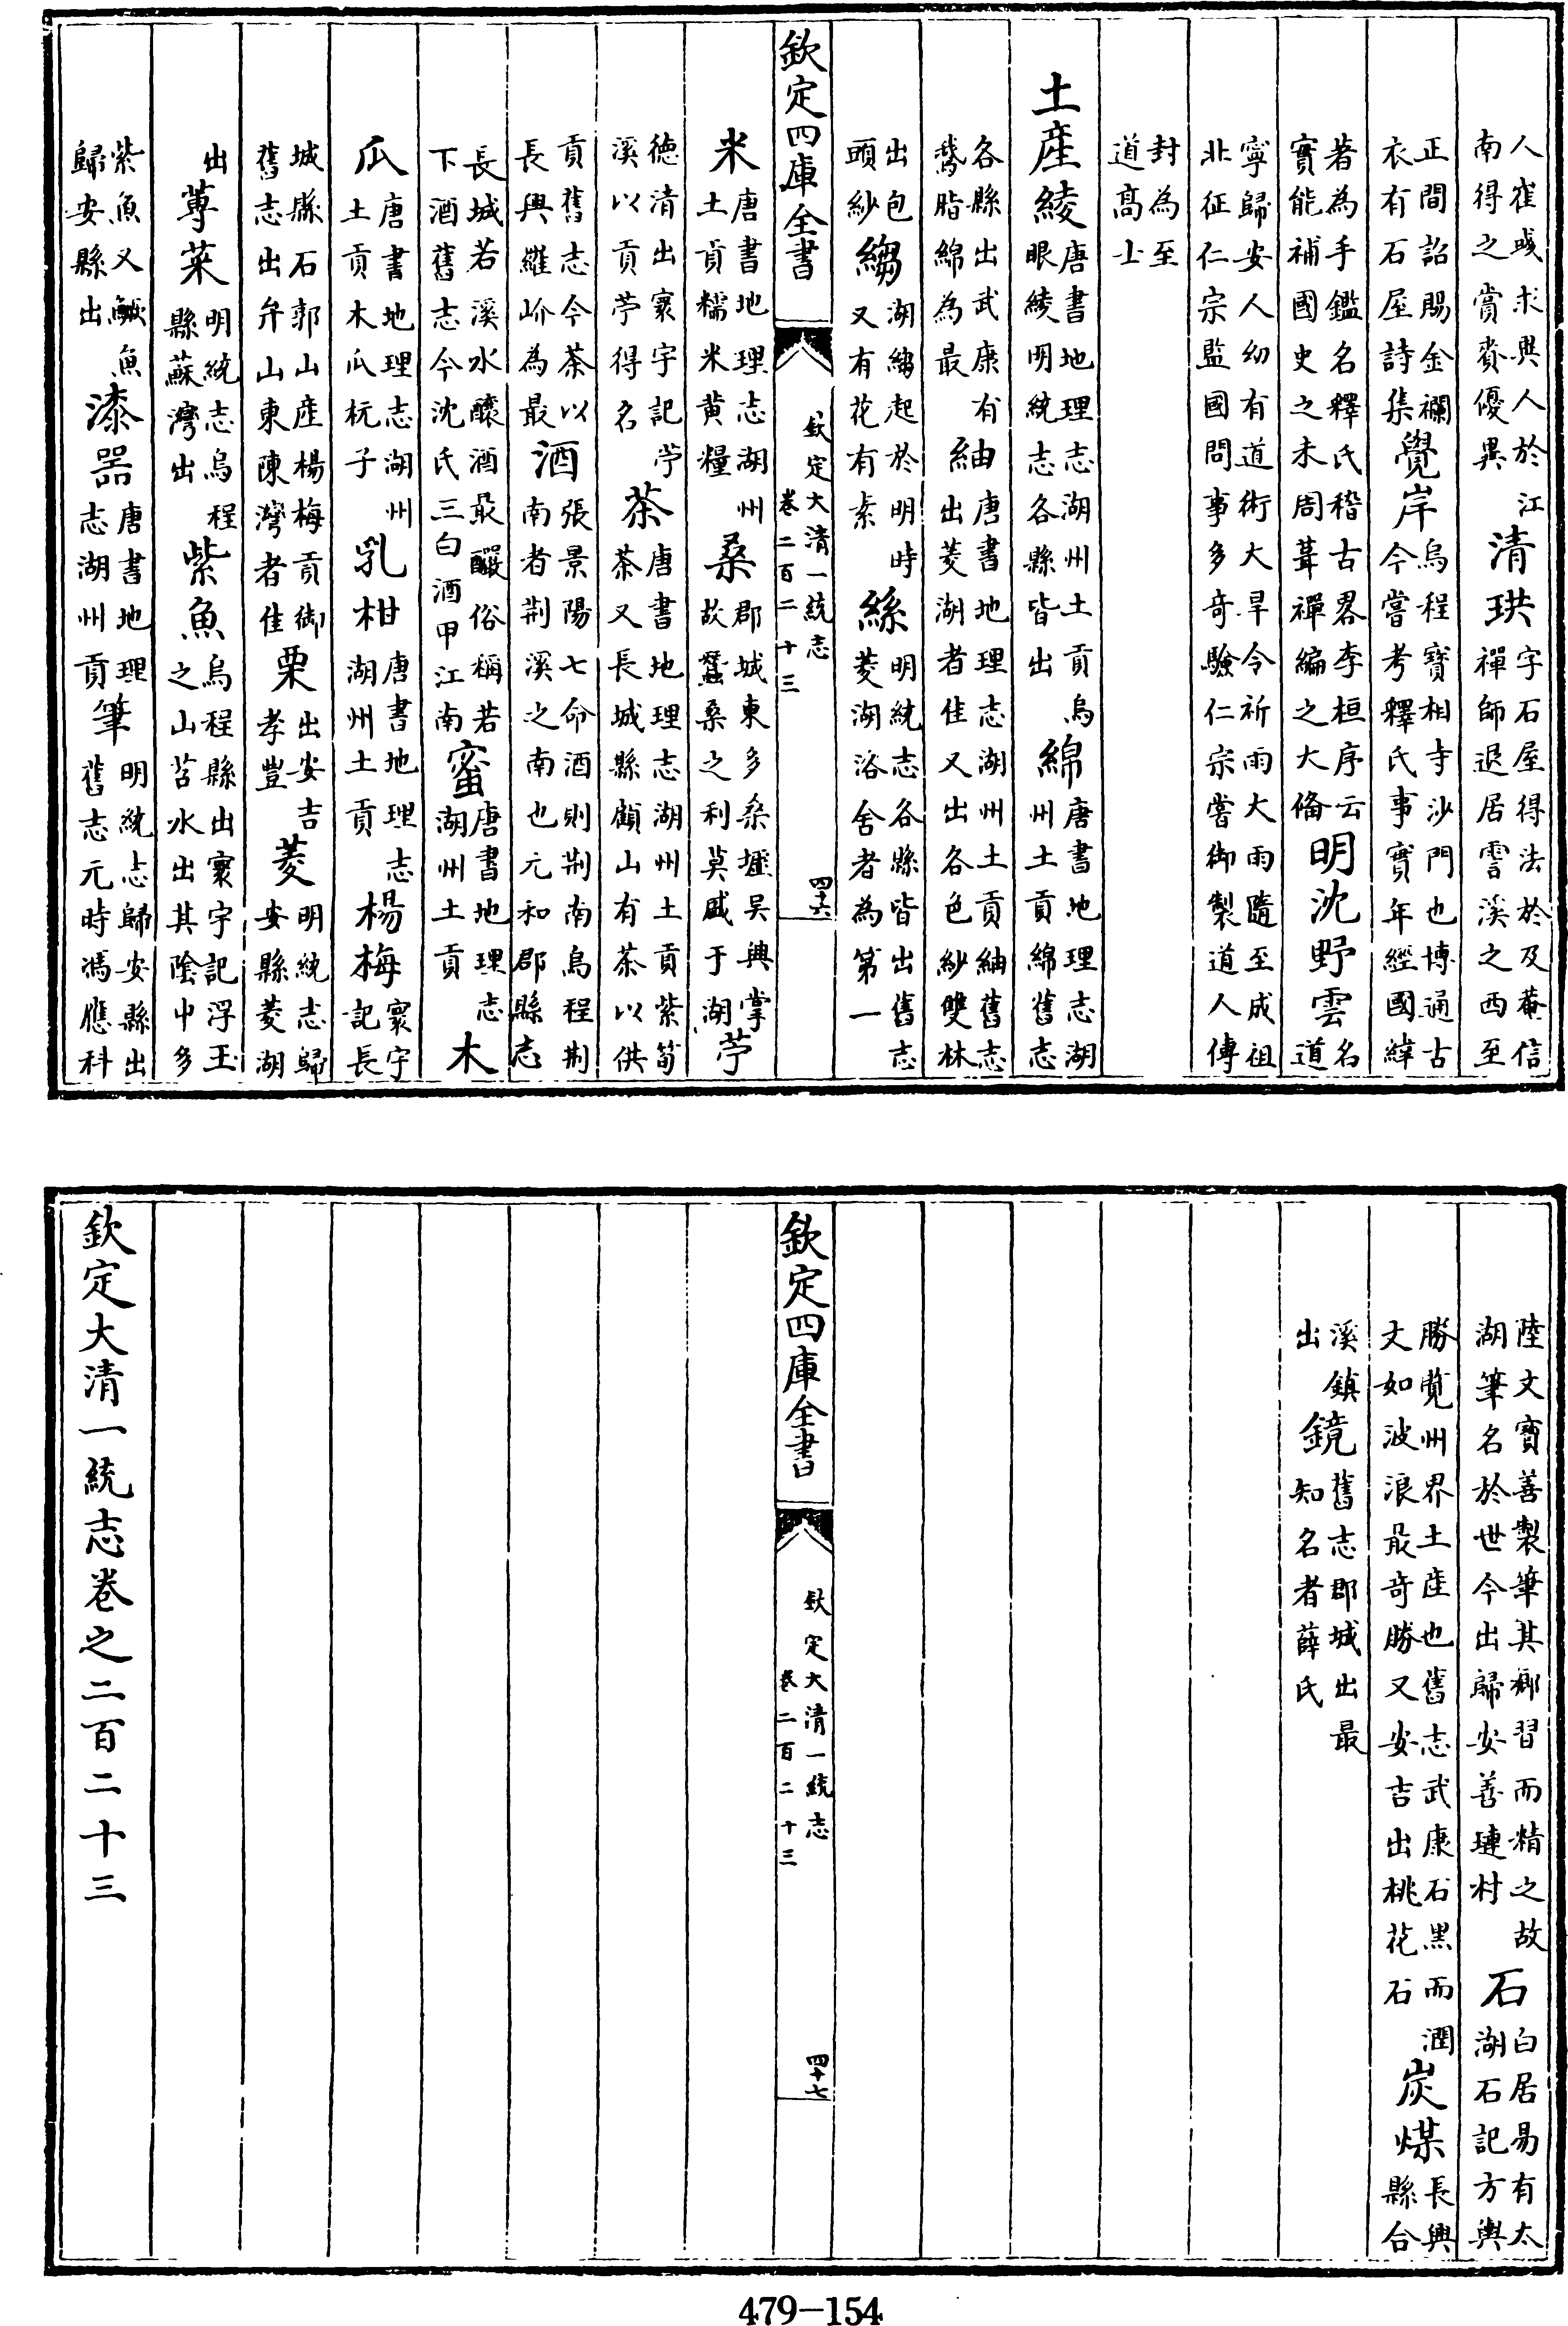 人崔彧求興人於江
南得之賞賚優異
清珙
字石屋得法於及菴信
禪師退居霅溪之西至
正間詔賜金襴
衣有石屋詩集
覺岸
烏程寶相寺沙門也博通古
今嘗考釋氏事實年經國緯
著為手鑑名釋氏稽古畧李桓序云
實能補國史之未周葺禪編之大備
明沈野雲
名
道
寧歸安人幼有道術大旱令祈雨大雨隨至成祖
北征仁宗監國問事多奇驗仁宗嘗御製道人傳
封為至
道髙士
土産綾
唐書地理志湖州土貢烏
眼綾明統志各縣皆出
綿
唐書地理志湖
州土貢綿舊志
各縣出武康有
鵞脂綿為最
紬
唐書地理志湖州土貢紬舊志
出菱湖者佳又出各色紗雙林
出包
頭紗
縐
湖縐起於明時
又有花有素
絲
明統志各縣皆出舊志
菱湖洛舍者為第一
欽定四庫全書
欽定大清一統志
卷二百二十三
四十六
米
唐書地理志湖州
土貢糯米黄糧
桑
郡城東多桑墟吳興掌
故蠶桑之利莫盛于湖
苧
徳清出寰宇記苧
溪以貢苧得名
茶
唐書地理志湖州土貢紫筍
茶又長城縣顧山有茶以供
貢舊志今茶以
長興羅岕為最
酒
張景陽七命酒則荆南烏程荆
南者荆溪之南也元和郡縣志
長城若溪水釀酒最釅俗稱若
下酒舊志今沈氏三白酒甲江南
蜜
唐書地理志
湖州土貢
木
瓜
唐書地理志湖州
土貢木瓜杬子
乳柑
唐書地理志
湖州土貢
楊梅
寰宇
記長
城縣石郭山産楊梅貢御
舊志出弁山東陳灣者佳
栗
出安吉
孝豐
菱
明統志歸
安縣菱湖
出
蓴菜
明統志烏程
縣蘇灣出
紫魚
烏程縣出寰宇記浮玉
之山苕水出其陰中多
紫魚又鱖魚
歸安縣出
漆器
唐書地理
志湖州貢
筆
明統志歸安縣出
舊志元時馮應科
陸文寶善製筆其鄉習而精之故
湖筆名於世今出歸安善璉村
石
白居易有太
湖石記方輿
勝覽州界土産也舊志武康石黑而潤
文如波浪最奇勝又安吉出桃花石
炭煤
長興
縣合
溪鎮
出
鏡
舊志郡城出最
知名者薛氏
欽定四庫全書
欽定大清一統志
卷二百二十三
四十七
欽定大清一統志卷之二百二十三
479-154